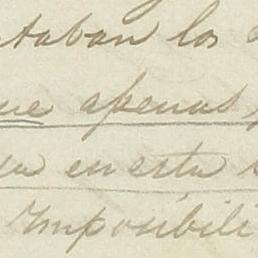 taban los
ue apenas
en esta
Imposibili